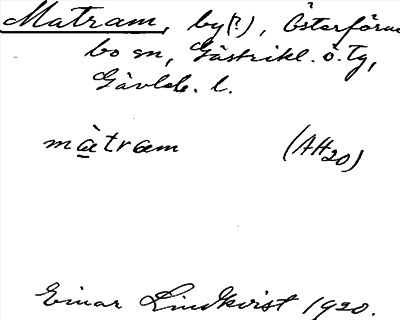 Matram, by(?), Österförne
bo sn, Gästrikl. ö. tg,
Gävleb. l.
màtram (AH20)
Einar Lindkvist 1920.